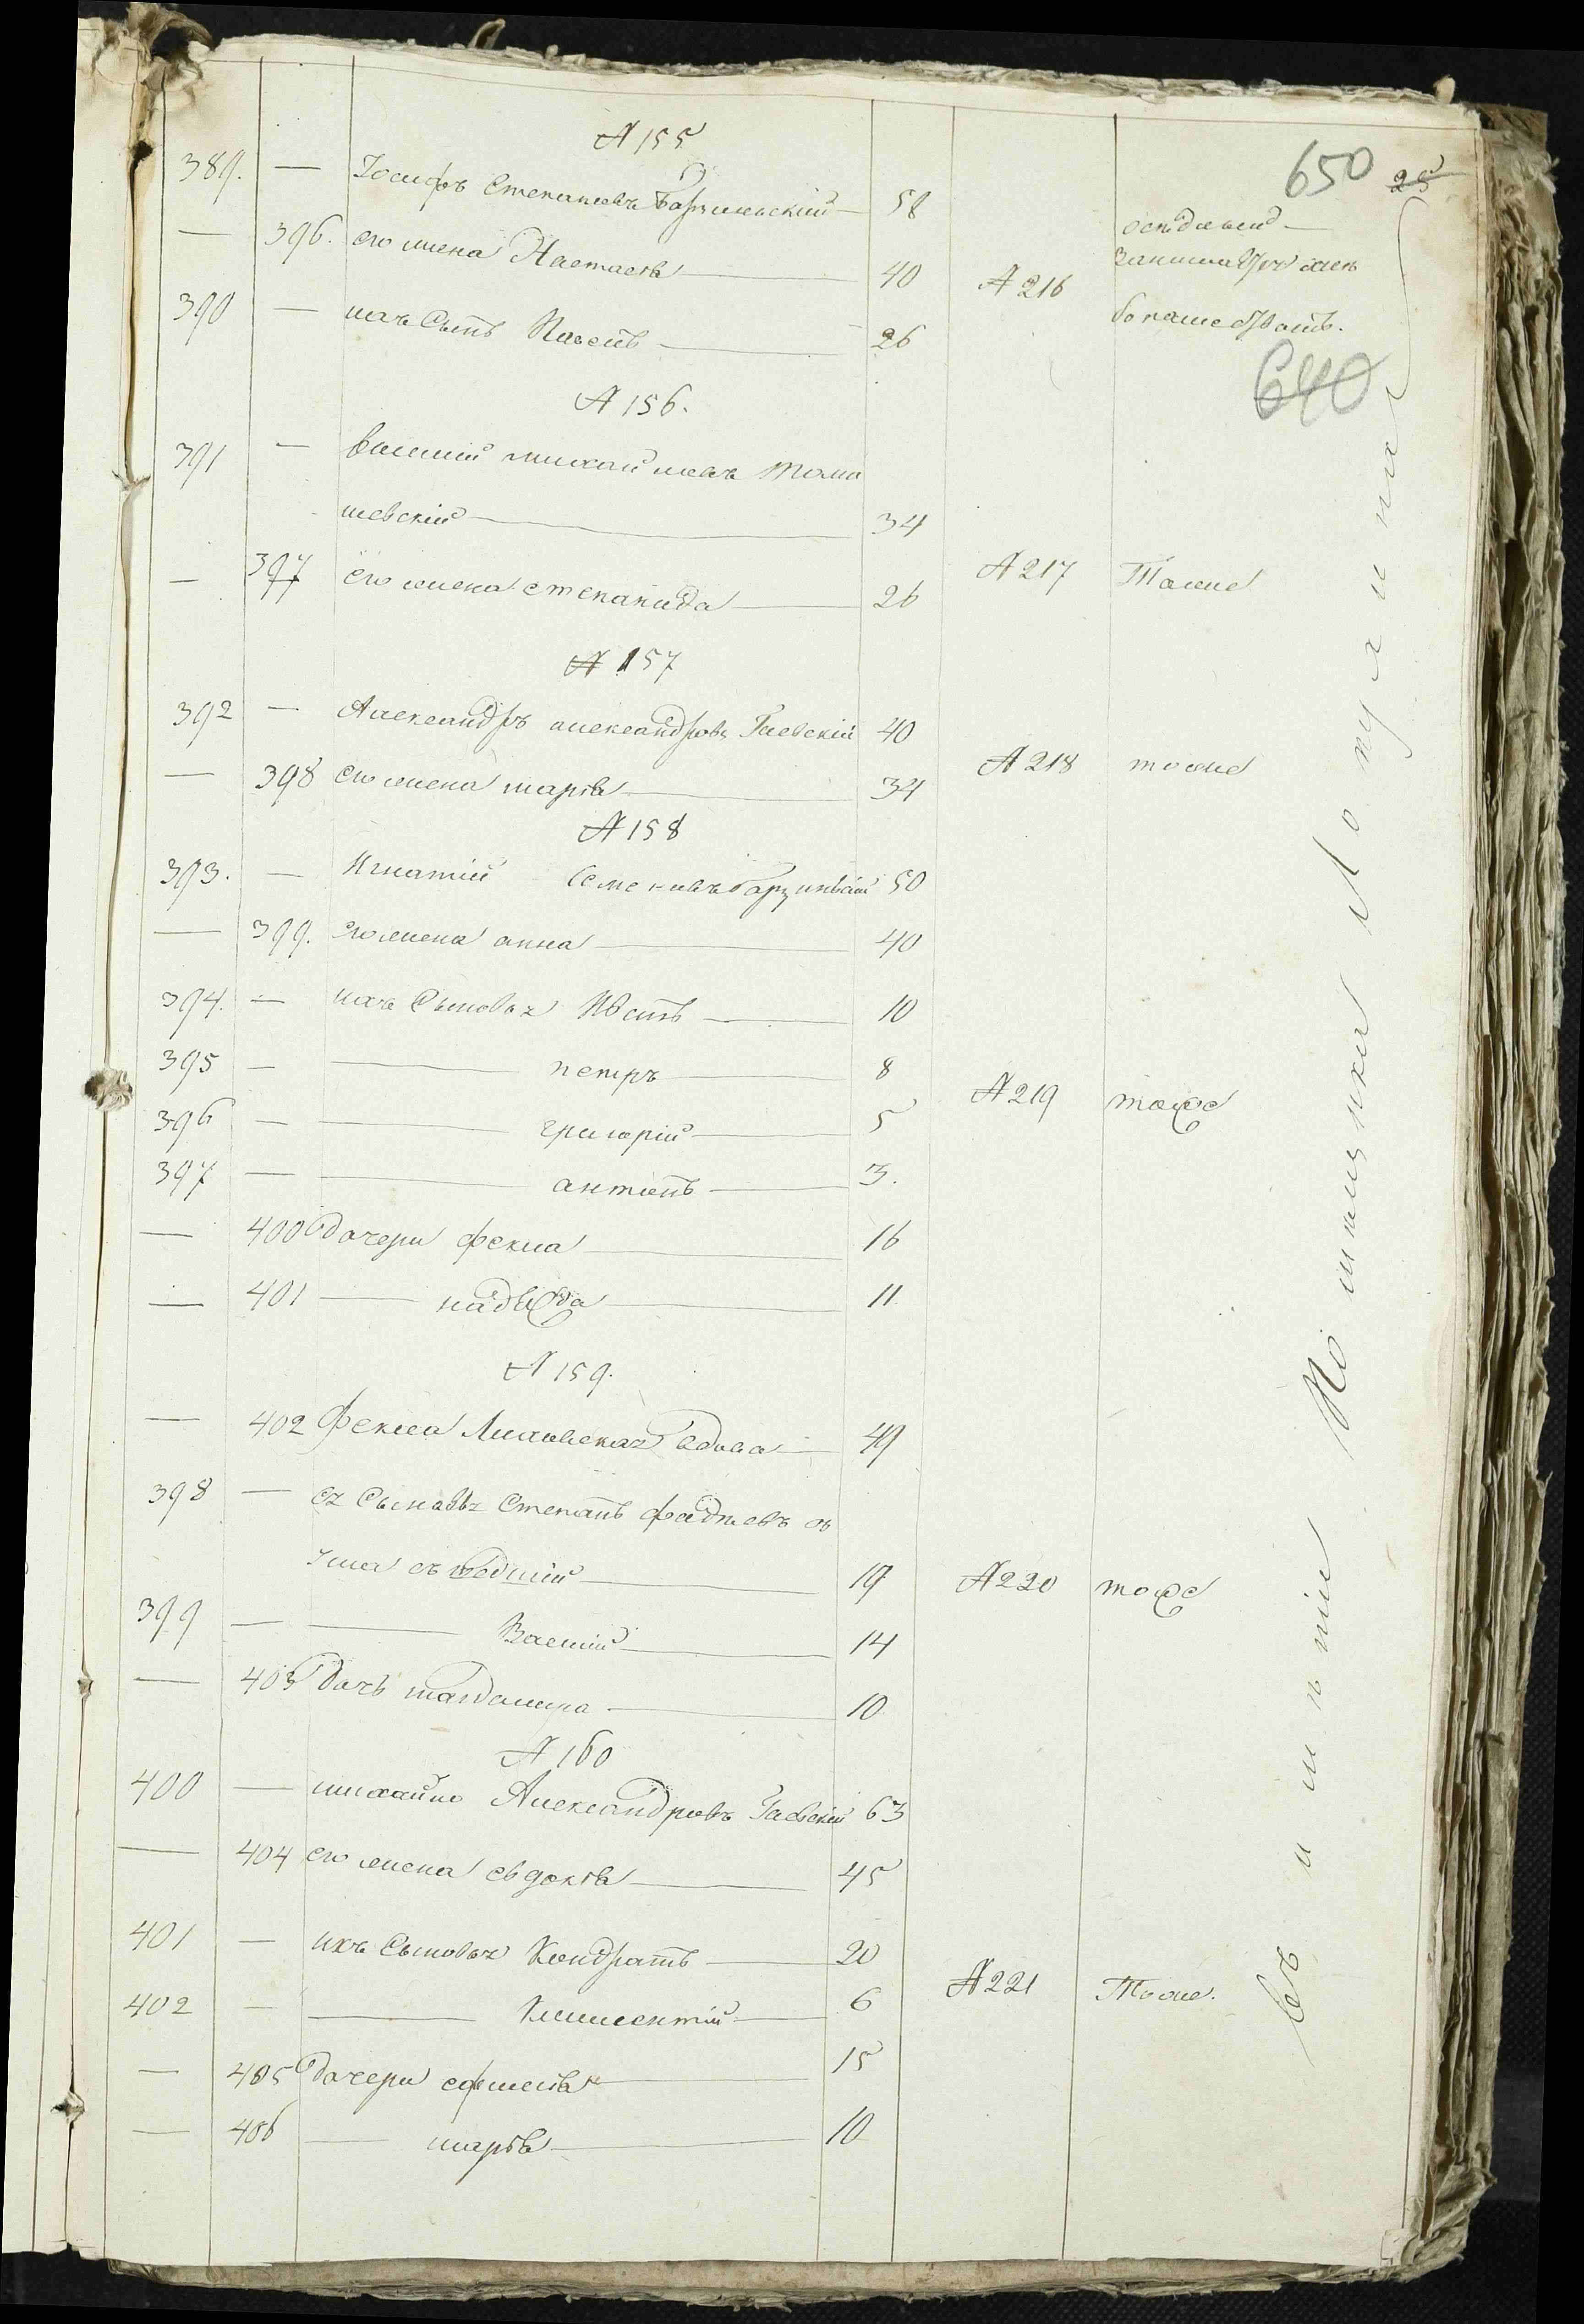 650 25
№ 155
389. — Іосифъ Степановъ — 58
— 396. его жена Настасія — 40 № 216
осѣдлый —
занимается хлѣ
бопашествомъ.
390 — ихъ Сынъ — 26
640
№ 156.
391 — Василій михайловъ Тома
шевскій — 34
— 397 его жена степанида — 26 № 217 Тоже
№ 157
392 — Александръ александровъ Гаевскій 40
— 398 его жена марія — 34 № 218 тоже
№ 158
393. — Игнатій Семеновъ 50
— 399. его жена анна — 40
394. — ихъ Сыновья Иванъ — 10
395 — — петръ — 8
396 — — григорій — 5 № 219 тоже
397 — — антонъ — 3.
— 400 дочери фекла — 16
— 401 — надежда — 11
№ 159.
— 402 Фекла вдова — 49
398 — Степанъ фадѣевъ
19 № 220 тоже
399 — — Василій — 14
— 403 дочь — 10
№ 160
400 — михайло Александровъ Гаевскій 63
— 404 его жена евдокія — 45
401 — ихъ Сыновья Кондратъ — 20
402 — — Климентій — 6 № 221 Тоже.
— 405 дочери — 15
— 406 — марія — 10
въ имѣніи Помѣщика Лопухина